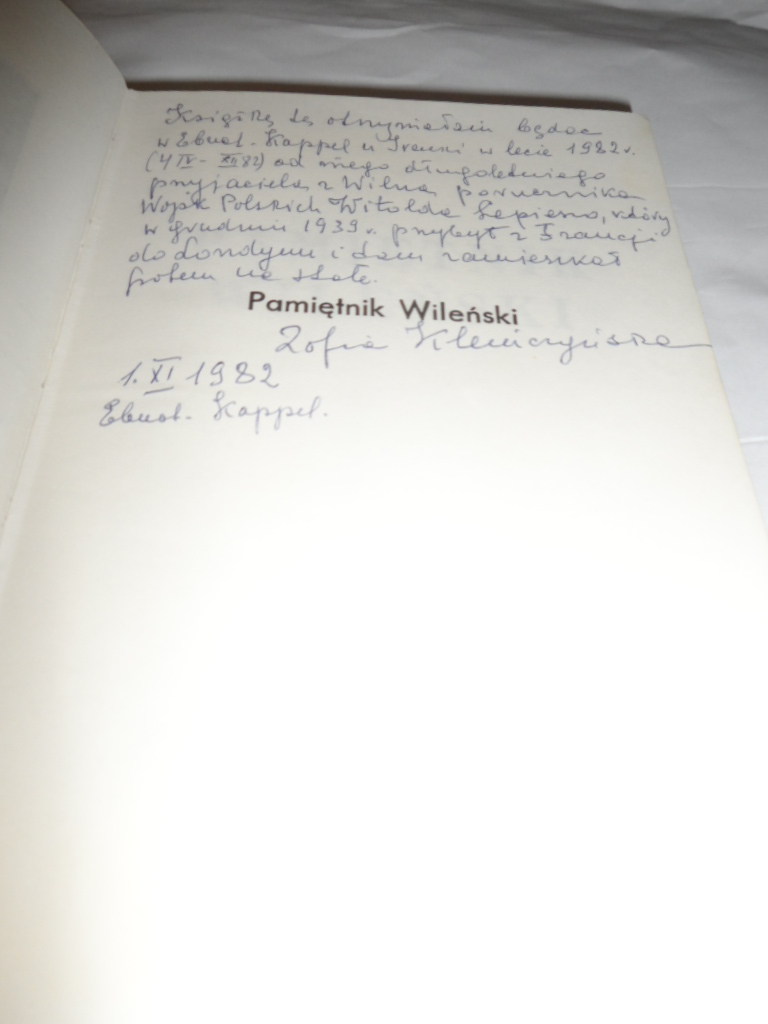 Książkę tę otrzymałam będąc
w Ebnat-Kappel u Irenki w lecie 1982 r.
(4 IV - XII 82) od mego długoletniego
przyjaciela z Wilna porucznika
Wojsk Polskich Witolda, który
w grudniu 1939 r. przybył z Francji
do Londynu i tam zamieszkał
potem na stałe.
Pamiętnik Wileński
Zofia
1. XI 1982
Ebnat-Kappel.